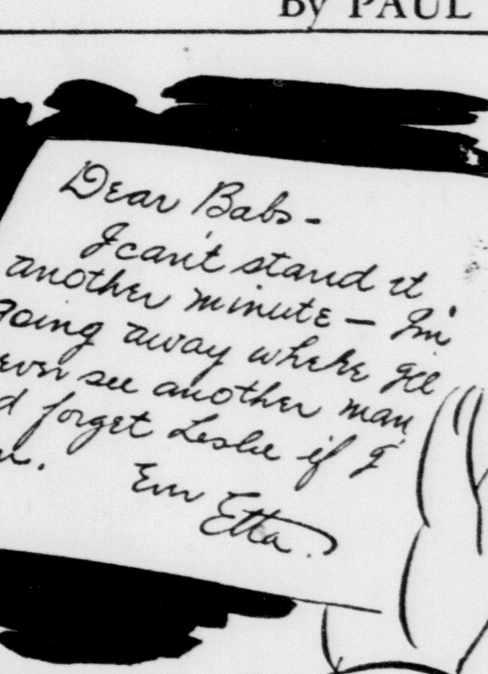 By PAUL
Dear Babs-
I can't stand it
another minute — I'm
going away where I'll
ever see another man
d forget Leslie if I
n.
Em Etta.